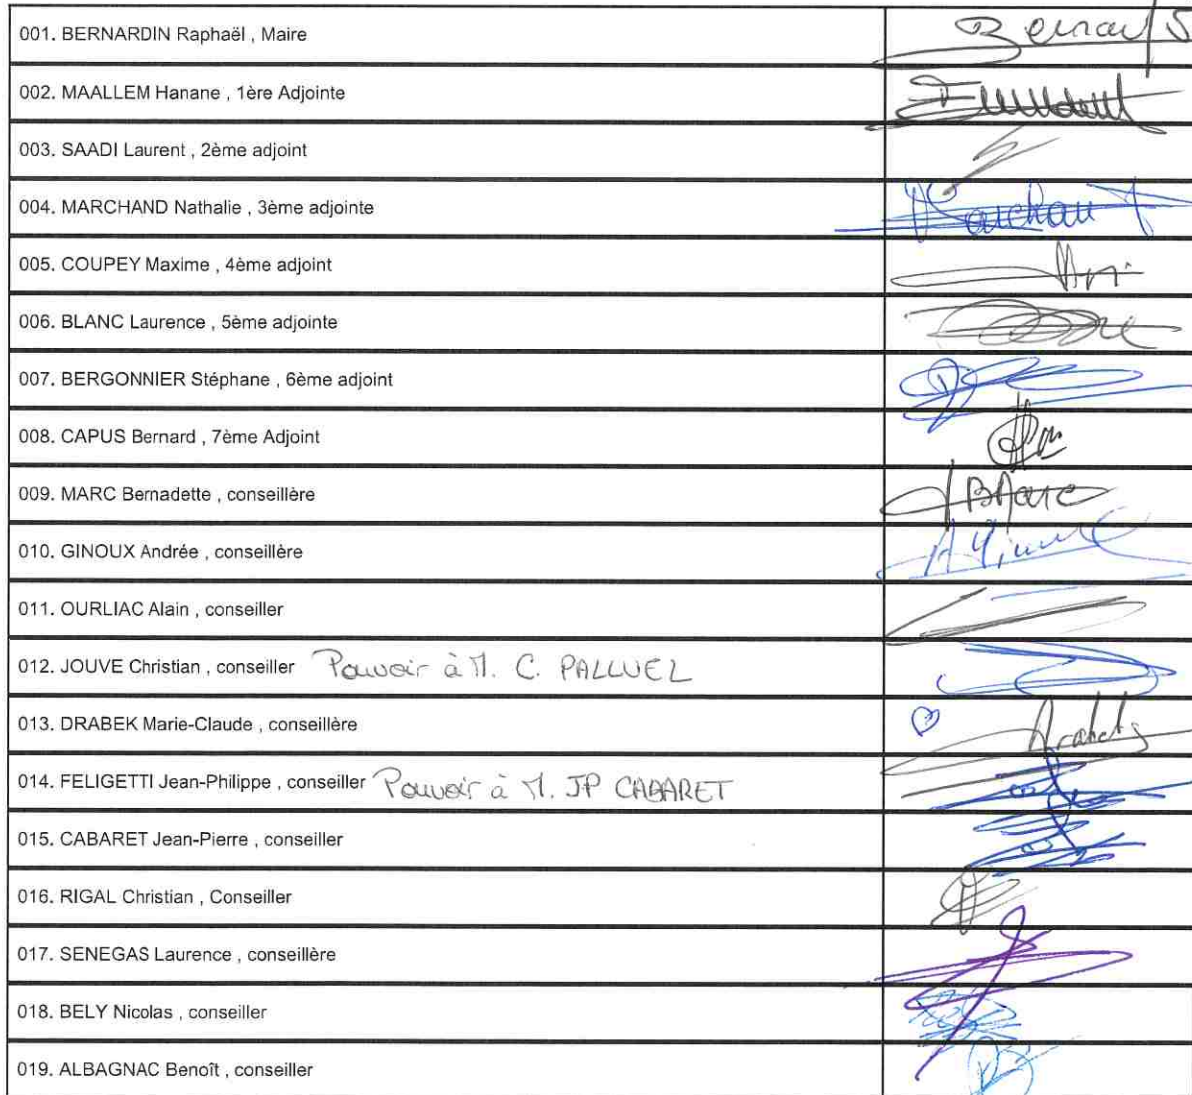 001. BERNARDIN Raphaël , Maire
002. MAALLEM Hanane , 1ère Adjointe
003. SAADI Laurent , 2ème adjoint
004. MARCHAND Nathalie , 3ème adjointe
Marchand
005. COUPEY Maxime , 4ème adjoint
006. BLANC Laurence , 5ème adjointe
007. BERGONNIER Stéphane , 6ème adjoint
008. CAPUS Bernard , 7ème Adjoint
009. MARC Bernadette , conseillère
BMarc
010. GINOUX Andrée , conseillère
011. OURLIAC Alain , conseiller
012. JOUVE Christian , conseiller Pouvoir à M. C. PALLUEL
013. DRABEK Marie-Claude , conseillère
014. FELIGETTI Jean-Philippe , conseiller Pouvoir à M. JP CABARET
015. CABARET Jean-Pierre , conseiller
016. RIGAL Christian , Conseiller
017. SENEGAS Laurence , conseillère
018. BELY Nicolas , conseiller
019. ALBAGNAC Benoît , conseiller